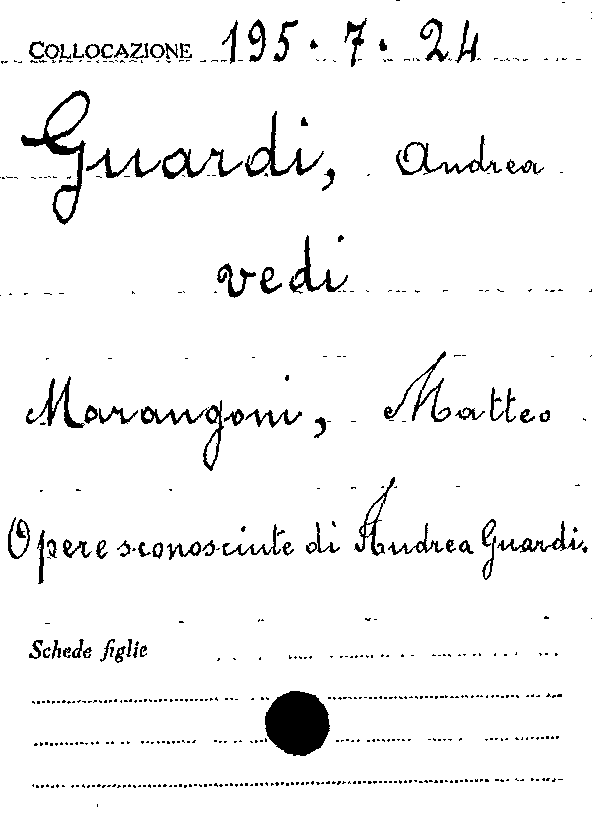 COLLOCAZIONE 195.7.24
Guardi, Andrea
vedi
Marangoni, Matteo
Opere sconosciute di Andrea Guardi.
Schede figlie